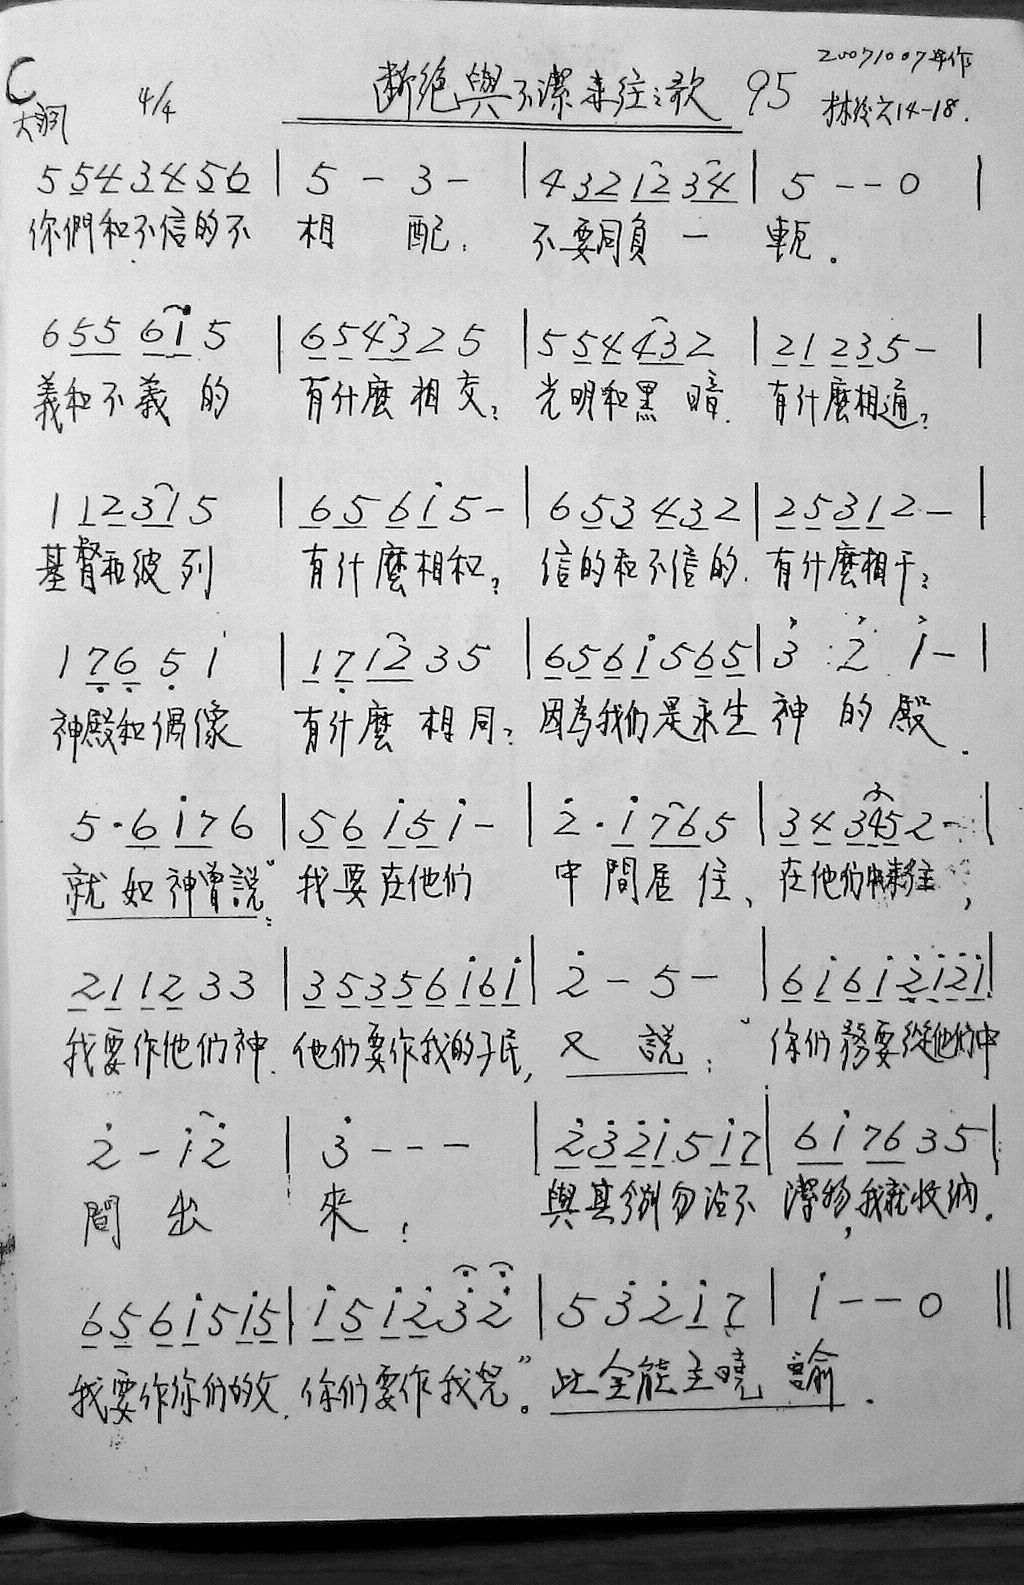 C大調 4/4 斷絕與不潔來往之歌 95 20071007年作
林後六14-18.
5 5 4 3 4 5 6 | 5 - 3 - | 4 3 2 1 2 3 4 | 5 - - 0 |
你們和不信的不 相 配. 不要同負一 軛.
6 5 5 6 i 5 | 6 5 4 3 2 5 | 5 5 4 4 3 2 | 2 1 2 3 5 - |
義和不義的 有什麼相交? 光明和黑暗. 有什麼相通?
1 1 2 3 1 5 | 6 5 6 i 5 - | 6 5 3 4 3 2 | 2 5 3 1 2 - |
基督和彼列 有什麼相和? 信的和不信的. 有什麼相干?
1 7 6 5 1 | 1 7 1 2 3 5 | 6 5 6 i 5 6 5 | 3 2 i - |
神殿和偶像 有什麼相同? 因為我们是永生 神的殿.
5 · 6 i 7 6 | 5 6 i 5 i - | 2 · i 7 6 5 | 3 4 3 4 5 2 - |
就如神曾說:“ 我要在他们 中間居住、 在他们中來往,
2 1 1 2 3 3 | 3 5 3 5 6 i 6 i | 2 - 5 - | 6 i 6 i 2 i 2 i |
我要作他们神. 他们要作我的子民, 又說:“ 你们務要從他们中
2 - i 2 | 3 - - - | 2 3 2 i 5 i 7 | 6 i 7 6 3 5 |
間出 來; 與其分別勿沾不 潔物, 我就收納.
6 5 6 i 5 i 5 | i 5 i 2 3 2 | 5 3 2 i 7 | i - - 0 ||
我要作你们的父. 你们要作我兒”。 此全能主曉 諭.